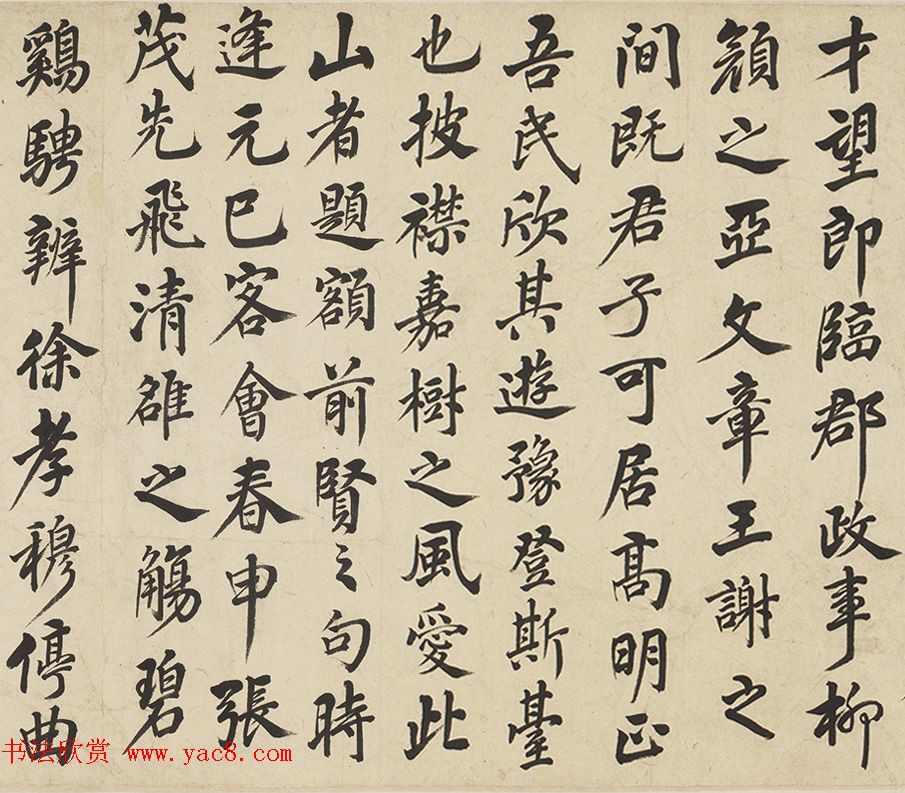 才望即臨郡政事柳
顔之亞文章王謝之
間既君子可居高明正
吾民欣其遊豫登斯臺
也披襟嘉樹之風愛此
山者題額前賢之句時
逢元巳客會春申張
茂先飛清雒之觴碧
鷄騁辨徐孝穆停曲
书法欣赏 www.yac8.com